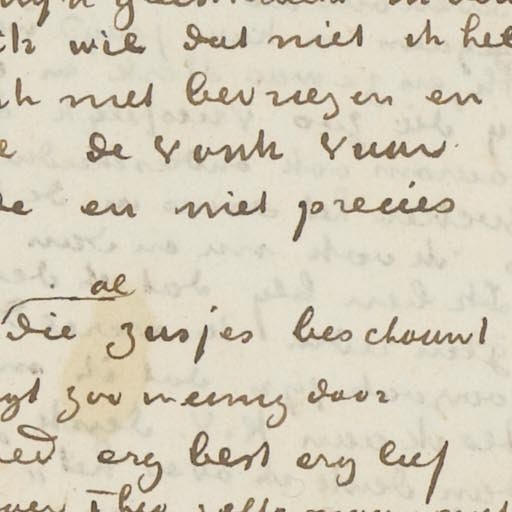 ik wil dat niet ik heb
niet bevriezen en
de vonk vuur.
en niet precies
al
die zusjes beschouwt
zoo weinig door
erg best erg lief